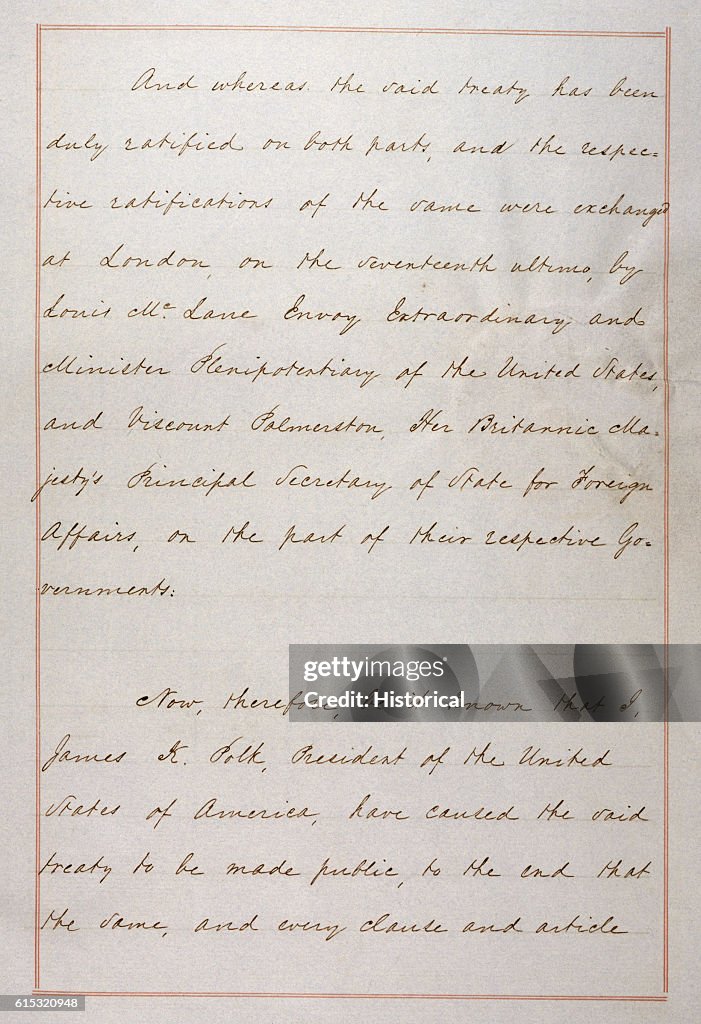 And whereas the said treaty has been
duly ratified on both parts, and the respec=
tive ratifications of the same were exchanged
at London, on the seventeenth ultimo, by
Louis Mc Lane Envoy Extraordinary and
Minister Plenipotentiary of the United States,
and Viscount Palmerston, Her Britannic Ma=
jesty's Principal Secretary of State for Foreign
Affairs, on the part of their respective Go=
vernments:
Now, therefore, known that I,
gettyimages
Historical
James K. Polk, President of the United
States of America, have caused the said
treaty to be made public, to the end that
the same, and every clause and article
615320948